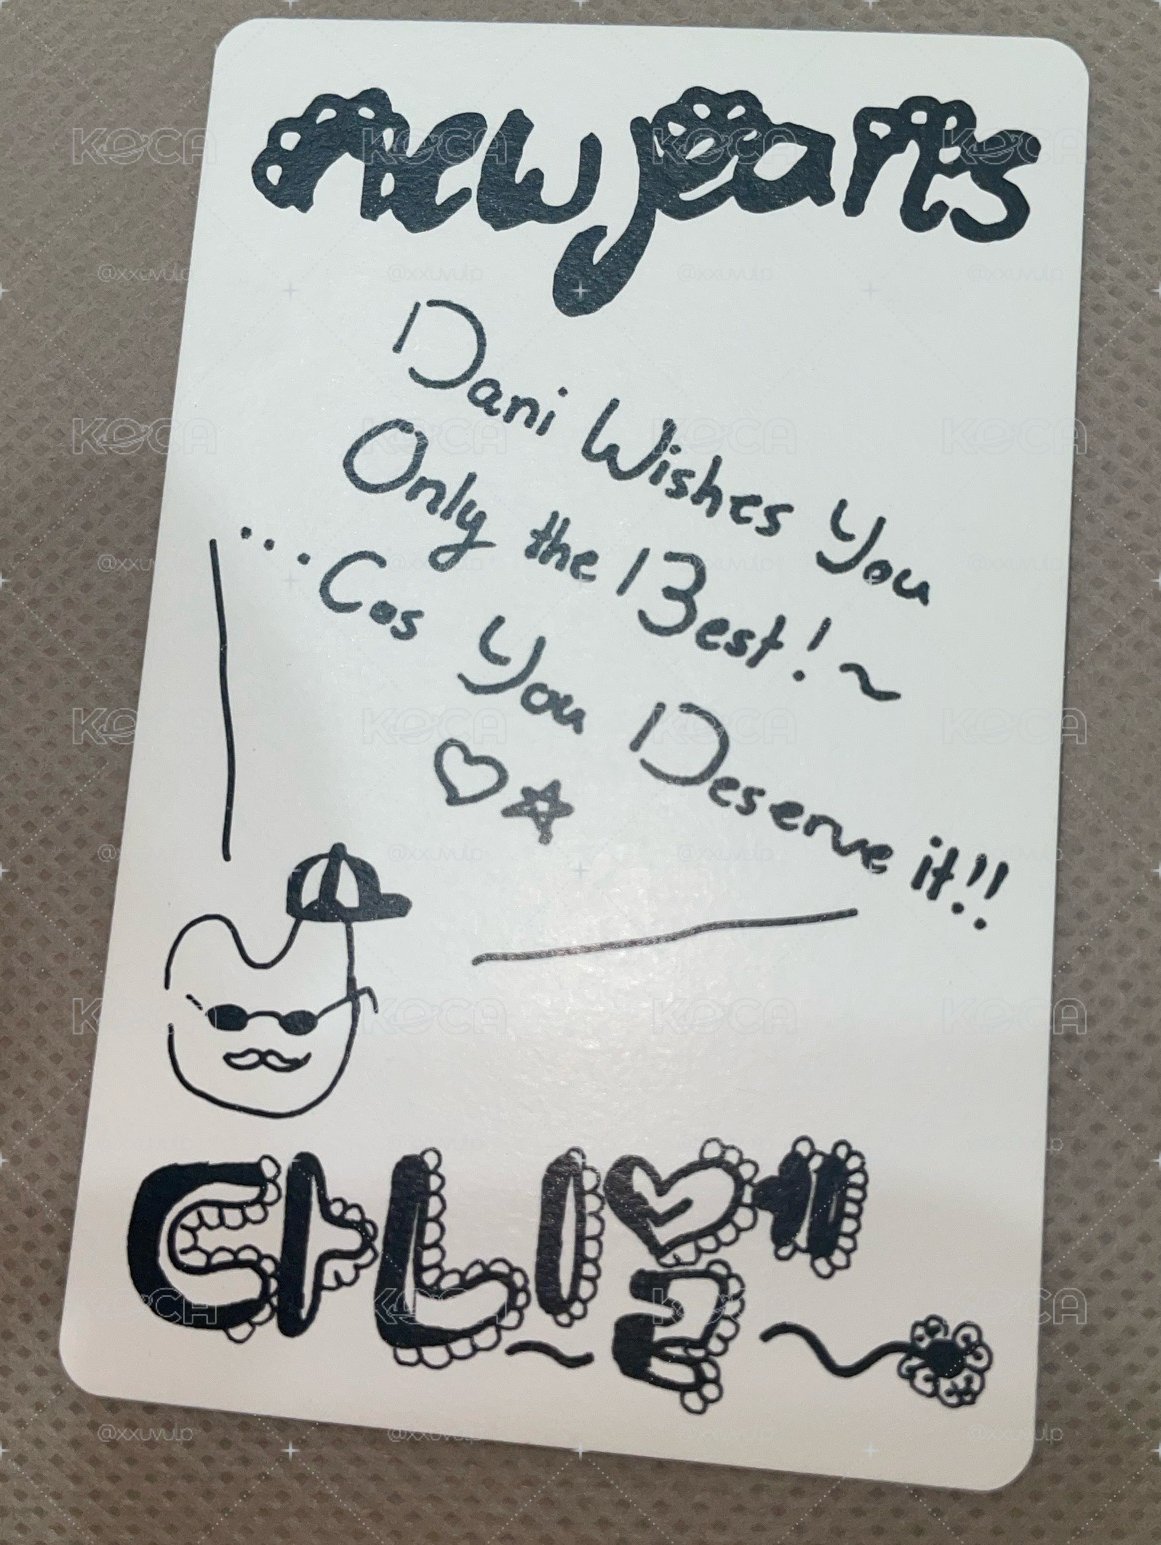 new jeans
Dani Wishes You
Only the Best!~
...Cos You Deserve it!!
♡☆
다니엘~
KOCA
@xxuvulp